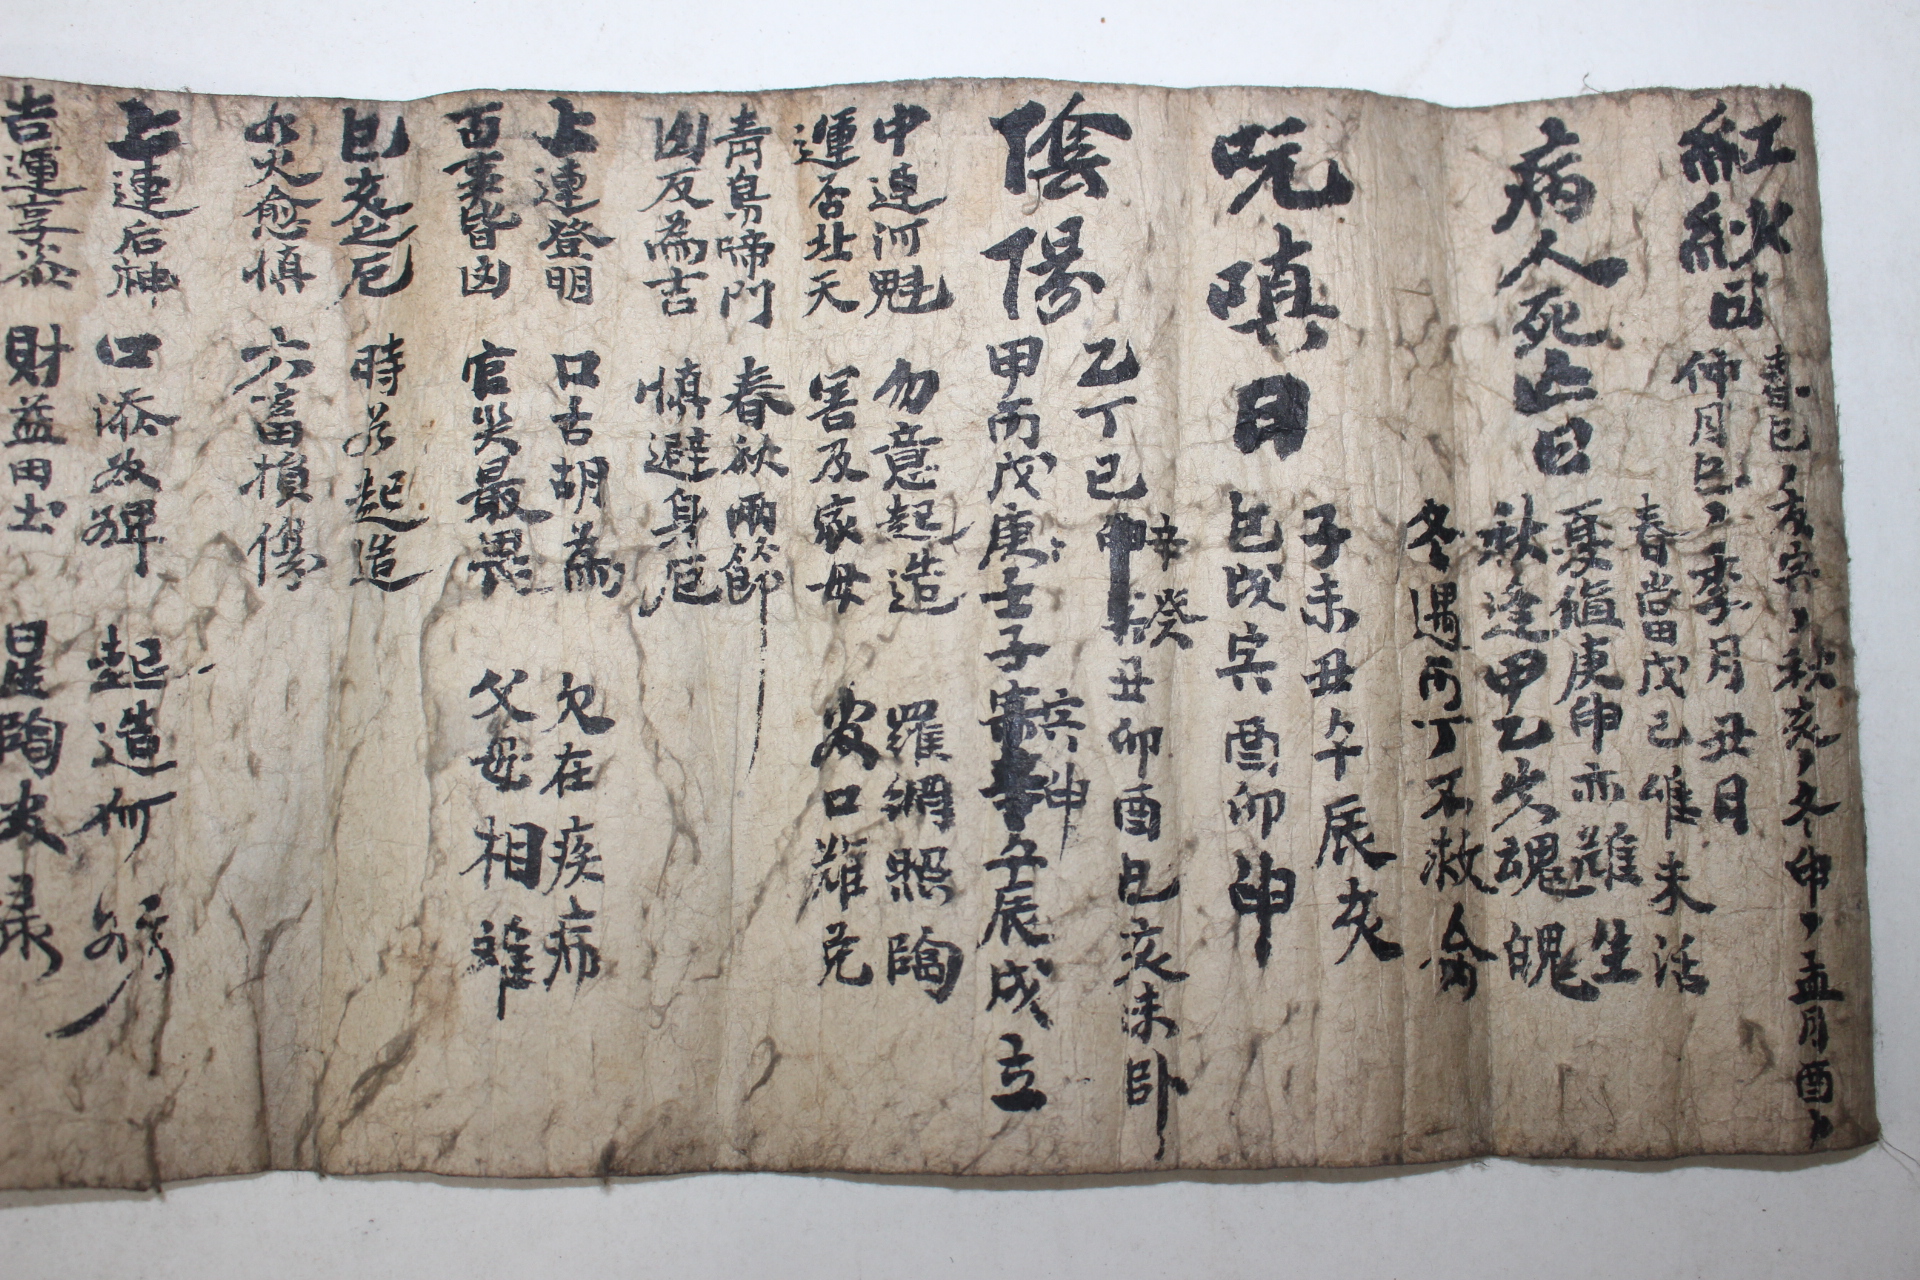 紅紗日
春巳丶亥寅丶秋亥丶冬申丶孟月酉丶
仲月巳丶季月丑日
病人死亡日
春當戊己難未活
夏値庚申亦難生
秋逢甲乙失魂魄
冬遇丙丁不救命
呪嗔日
子未丑午辰亥
巳戌寅酉卯申
陰陽
乙丁己辛癸丑卯酉巳亥未卧
甲丙戊庚壬子寅申午辰戌立
中連河魁 勿意起造 羅網照臨
運否北天 害及家母 口難免
青鳥啼門 春秋兩節
凶反為吉 愼避身厄
上連登明 口舌胡為 欠在疾病
百事皆凶 官災最畏 父母相離
巳亥之厄 時 起造
水火愈愼 六畜損傷
上連后神 口添 起造何
吉運享 財益田土 星臨